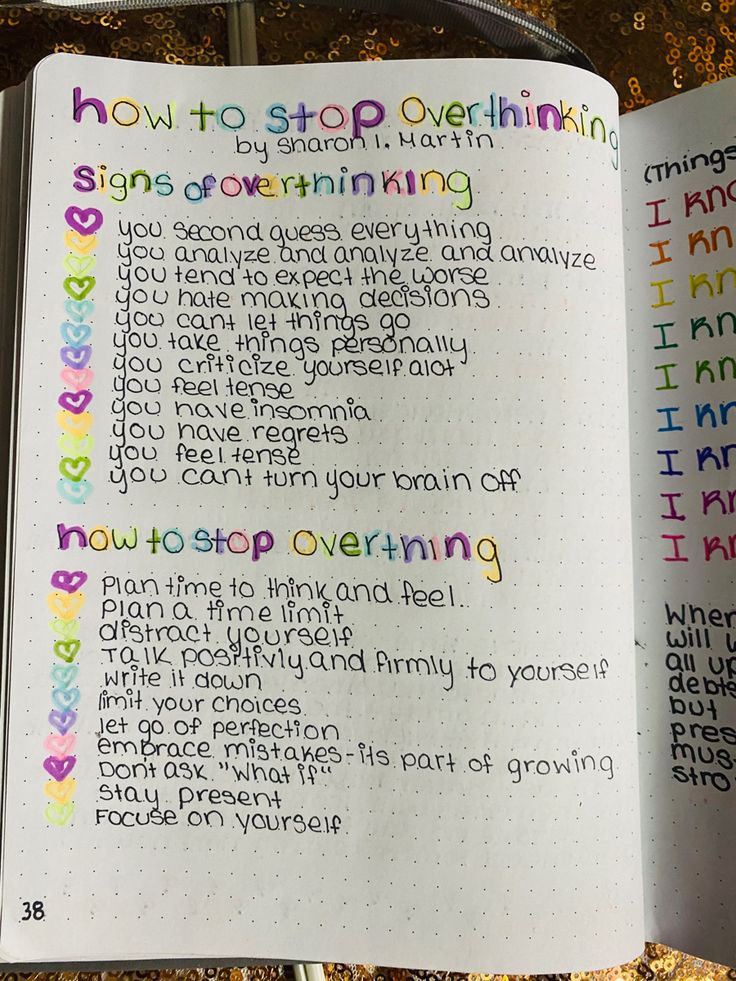 how to stop Overthinking
by Sharon I. Martin
Signs of overthinking
you second guess everything
you analyze and analyze and analyze
you tend to expect the worse
you hate making decisions
you cant let things go
you take things personally
you criticize yourself alot
you feel tense
you have insomnia
you have regrets
you feel tense
you cant turn your brain off
how to stop Overthing
Plan time to think and feel.
Plan a time limit
distract yourself
Talk positivly and firmly to yourself
write it down
limit your choices
let go of perfection
embrace mistakes-its part of growing
Dont ask "what if"
stay present
Focuse on yourself
38
(Things
I
I
I
I
I
I
I
I
I
When
will
all up
but